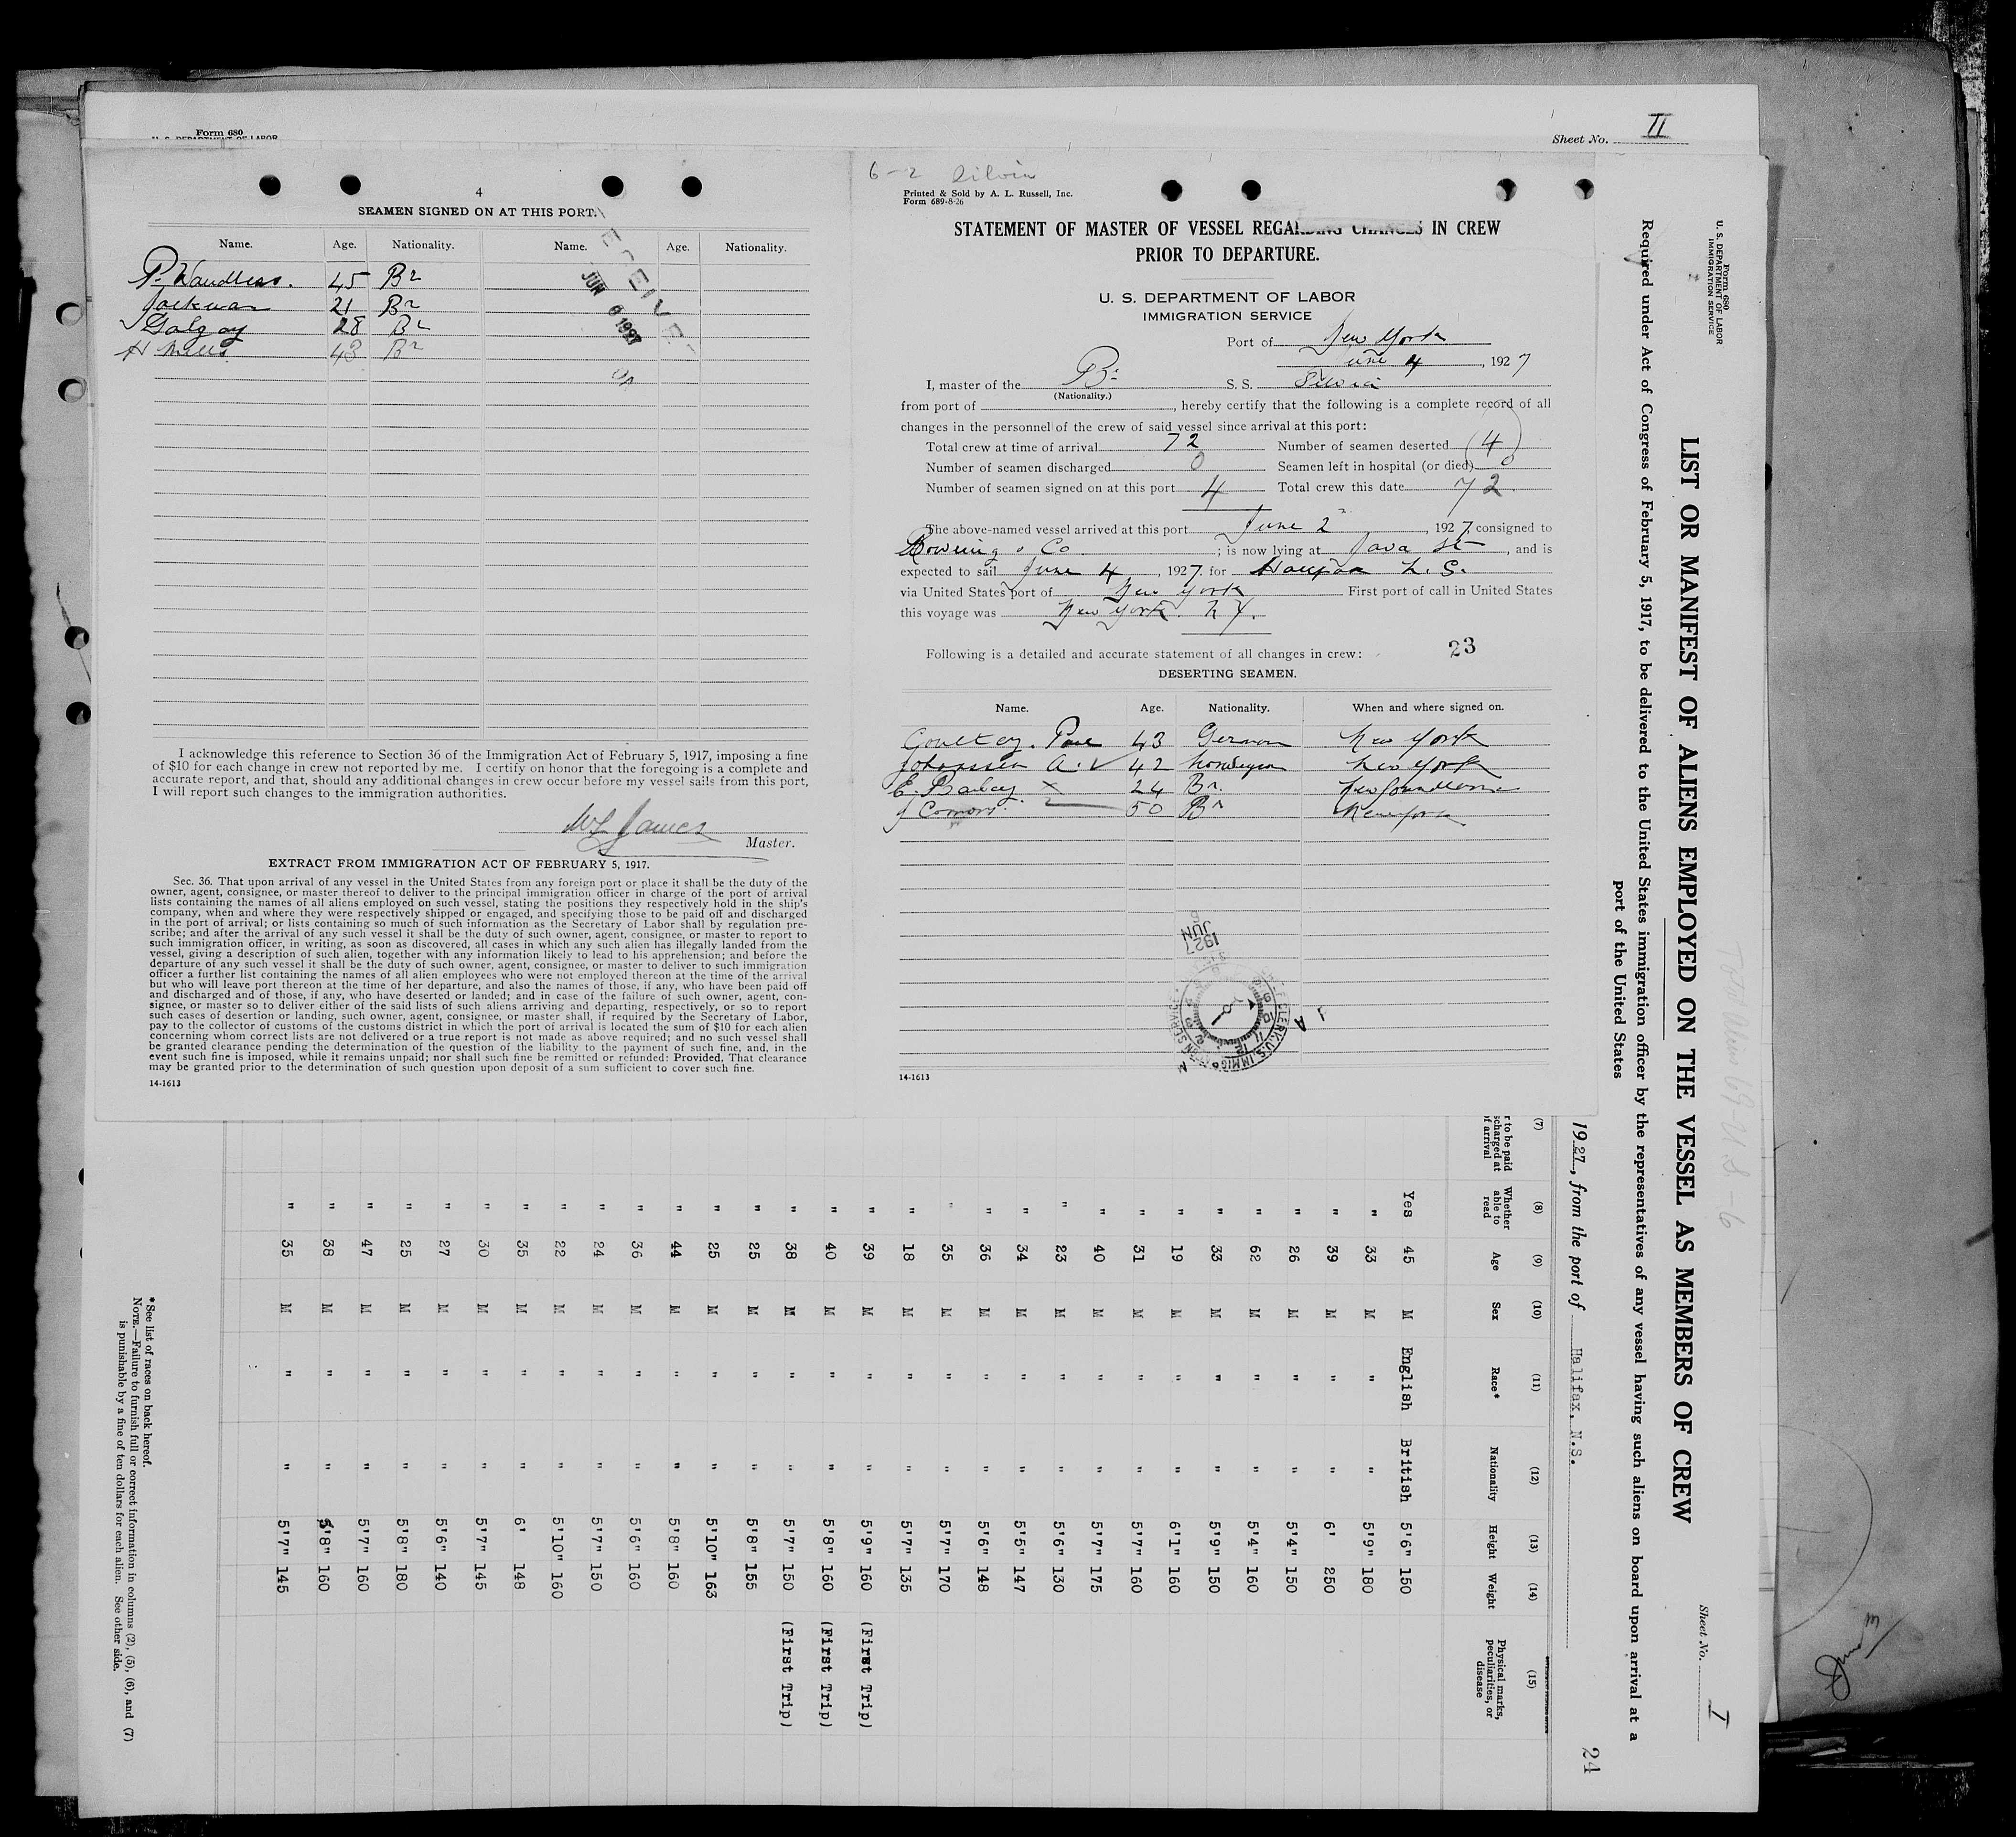 Form 680
U. S. DEPARTMENT OF LABOR
Sheet No. II
4
SEAMEN SIGNED ON AT THIS PORT.
Name. Age. Nationality. Name. Age. Nationality.
P. 45 Br
21 Br
Galgay 28 Br
H 43 Br
JUN 6 1927
I acknowledge this reference to Section 36 of the Immigration Act of February 5, 1917, imposing a fine
of $10 for each change in crew not reported by me. I certify on honor that the foregoing is a complete and
accurate report, and that, should any additional changes in crew occur before my vessel sails from this port,
I will report such changes to the immigration authorities.
James
Master.
EXTRACT FROM IMMIGRATION ACT OF FEBRUARY 5, 1917.
Sec. 36. That upon arrival of any vessel in the United States from any foreign port or place it shall be the duty of the
owner, agent, consignee, or master thereof to deliver to the principal immigration officer in charge of the port of arrival
lists containing the names of all aliens employed on such vessel, stating the positions they respectively hold in the ship's
company, when and where they were respectively shipped or engaged, and specifying those to be paid off and discharged
in the port of arrival; or lists containing so much of such information as the Secretary of Labor shall by regulation pre-
scribe; and after the arrival of any such vessel it shall be the duty of such owner, agent, consignee, or master to report to
such immigration officer, in writing, as soon as discovered, all cases in which any such alien has illegally landed from the
vessel, giving a description of such alien, together with any information likely to lead to his apprehension; and before the
departure of any such vessel it shall be the duty of such owner, agent, consignee, or master to deliver to such immigration
officer a further list containing the names of all alien employees who were not employed thereon at the time of the arrival
but who will leave port thereon at the time of her departure, and also the names of those, if any, who have been paid off
and discharged and of those, if any, who have deserted or landed; and in case of the failure of such owner, agent, con-
signee, or master so to deliver either of the said lists of such aliens arriving and departing, respectively, or so to report
such cases of desertion or landing, such owner, agent, consignee, or master shall, if required by the Secretary of Labor,
pay to the collector of customs of the customs district in which the port of arrival is located the sum of $10 for each alien
concerning whom correct lists are not delivered or a true report is not made as above required; and no such vessel shall
be granted clearance pending the determination of the question of the liability to the payment of such fine, and, in the
event such fine is imposed, while it remains unpaid; nor shall such fine be remitted or refunded: Provided, That clearance
may be granted prior to the determination of such question upon deposit of a sum sufficient to cover such fine.
14-1613
6-2 Silvia
Printed & Sold by A. L. Russell, Inc.
Form 689-8-26
STATEMENT OF MASTER OF VESSEL REGARDING CHANGES IN CREW
PRIOR TO DEPARTURE.
U. S. DEPARTMENT OF LABOR
IMMIGRATION SERVICE
Port of New York
June 4, 1927
I, master of the Br S. S. Silvia
(Nationality.)
from port of , hereby certify that the following is a complete record of all
changes in the personnel of the crew of said vessel since arrival at this port:
Total crew at time of arrival 72 Number of seamen deserted (4)
Number of seamen discharged 0 Seamen left in hospital (or died) 0
Number of seamen signed on at this port 4 Total crew this date 72
The above-named vessel arrived at this port June 2, 1927, consigned to
Bowring & Co ; is now lying at Java St, and is
expected to sail June 4, 1927. for Halifax N. S.
via United States port of New York First port of call in United States
this voyage was New York. N Y.
Following is a detailed and accurate statement of all changes in crew: 23
DESERTING SEAMEN.
Name. Age. Nationality. When and where signed on.
43 German New York
Johanssen A. 42 Norwegian New York
E. Bailey X 24 Br. Newfoundland
J Connors 50 Br New York
1927
JUN
14-1613
Form 680
U. S. DEPARTMENT OF LABOR
IMMIGRATION SERVICE
Sheet No. I
LIST OR MANIFEST OF ALIENS EMPLOYED ON THE VESSEL AS MEMBERS OF CREW
Required under Act of Congress of February 5, 1917, to be delivered to the United States immigration officer by the representatives of any vessel having such aliens on board upon arrival at a
port of the United States
1927, from the port of Halifax, N.S.
24
(7) (8) (9) (10) (11) (12) (13) (14) (15)
r to be paid scharged at f arrival Whether able to read Age Sex Race* Nationality Height Weight Physical marks, peculiarities, or disease
Yes 45 M English British 5'6" 150
" 33 M " " 5'9" 180
" 39 M " " 6' 250
" 26 M " " 5'4" 150
" 62 M " " 5'4" 160
" 33 M " " 5'9" 150
" 19 M " " 6'1" 160
" 31 M " " 5'7" 160
" 40 M " " 5'7" 175
" 23 M " " 5'6" 130
" 34 M " " 5'5" 147
" 36 M " " 5'6" 148
" 35 M " " 5'7" 170
" 18 M " " 5'7" 135
" 39 M " " 5'9" 160 (First Trip)
" 40 M " " 5'8" 160 (First Trip)
" 38 M " " 5'7" 150 (First Trip)
" 25 M " " 5'8" 155
" 25 M " " 5'10" 163
" 44 M " " 5'8" 160
" 36 M " " 5'6" 160
" 24 M " " 5'7" 150
" 22 M " " 5'10" 160
" 35 M " " 6' 148
" 30 M " " 5'7" 145
" 27 M " " 5'6" 140
" 25 M " " 5'8" 180
" 47 M " " 5'7" 160
" 38 M " " 5'8" 160
" 35 M " " 5'7" 145
*See list of races on back hereof.
NOTE.—Failure to furnish full or correct information in columns (2), (5), (6), and (7)
is punishable by a fine of ten dollars for each alien. See other side.
June 3